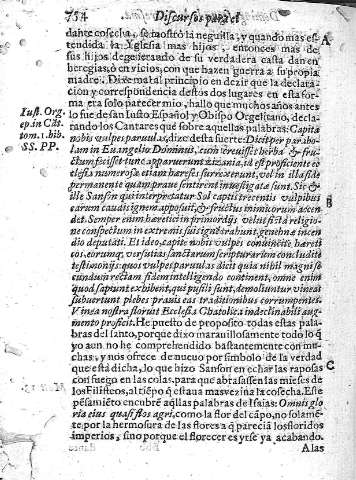 754 Discursos para el
dante cosecha, se mostrò la neguilla, y quando mas es- A
tendida la Yglesia mas hijos, entonces mas de
sus hijos degenerando de su verdadera casta dan en
heregias, ò en vicios, con que hazen guerra a su propia
madre. Dixe mal al principio en dezir que la declara-
cion y correspondencia destos dos lugares en esta for-
ma era solo parecer mio, hallo que muchos años antes
Iust. Org. lo fue de san Iusto Español y Obispo Orgelitano, decla-
ep. in Cãt. rando los Cantares que sobre aquellas palabras: Capita
tom. 1. bib. nobis vulpes paruulas, dize desta suerte: Dicit per parabo
SS. PP. lam in Euangelio Dominus, cum creuisset herba & fru-
ctum fecisset tunc apparuerunt zizania, id est proficiente ec
clesia numerosa etiam hæreses surrexerunt, vel in illa fide
permanente quam praue sentirent inuestigata sunt. Sic &
ille Sanson qui interpretatur Sol captis trecentis vulpibus B
earum caudis ignem apposuit, & fructus inimicorum accen
det. Semper enim hæretici in primordijs velut ficta religio-
ne conspectum in extremis sui signa trahunt, gehennæ incen
dio deputati. Et ideo, capite nobis vulpes conuincite hæreti
cos, eorumq; versutias sanctarum scripturarum concludite
testimonijs: quos vulpes paruulas dicit quia nihil magni se-
cundum rectam fidem intelligendo continent, omne enim
quod sapiunt exhibent, qui pusilli sunt, demoliuntur vineas
subuertunt plebes prauis eas traditionibus corrumpentes.
Vinea nostra floruit Ecclesia Chatolica indeclinabili aug-
mento proficit. He puesto de proposito todas estas palabras
del santo, porque dixo marauillosamente todo lo q̃
yo aun no he comprehendido bastantemente con mu-
chas, y nos ofrece de nueuo por simbolo de la verdad
que està dicha, lo que hizo Sanson en echar las raposas C
con fuego en las colas, para que abrasassen las mieses de
los Filisteos, al tiẽpo q̃ estaua mas vezina la cosecha. Este
pẽsamiẽto encubrẽ aq̃llas palabras de Isaias: Omnis glo
ria eius quasi flos agri, como la flor del cãpo, no solamẽ-
te por la hermosura de las flores a q̃ parecia los floridos
imperios, sino porque el florecer es yrse ya acabando.
Alas